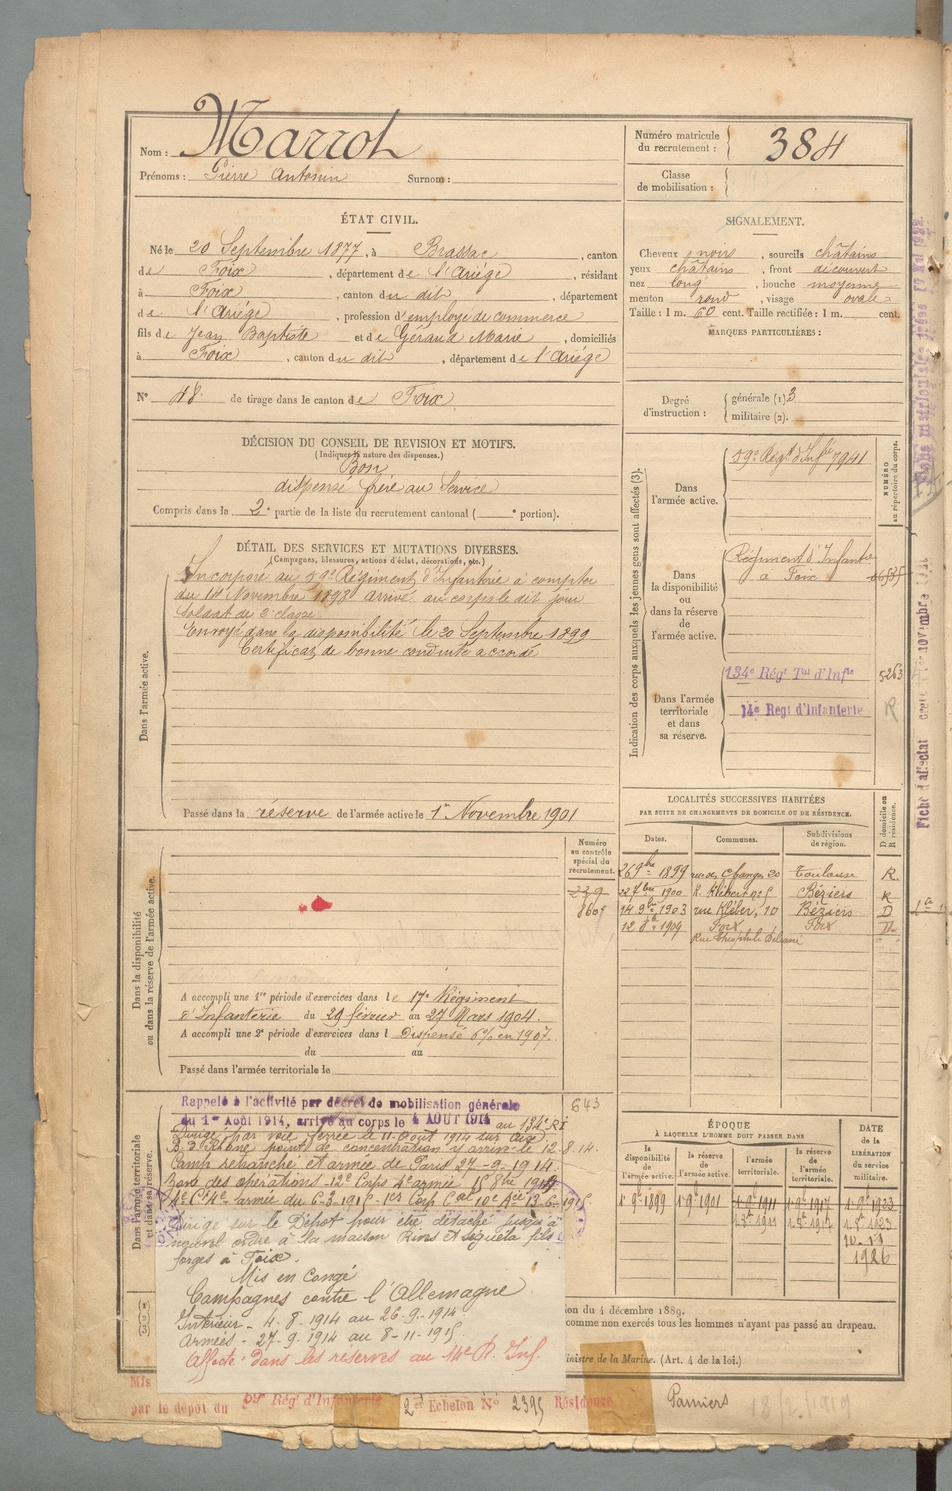 Nom : Marrot
Prénoms : Pierre Antonin Surnom :
Numéro matricule du recrutement : 384
Classe de mobilisation :
ÉTAT CIVIL.
Né le 20 Septembre 1877, à Brassac, canton
de Foix, département de l'Ariège, résidant
à Foix, canton du dit, département
de l'Ariège, profession d'employé de commerce
fils de Jean Baptiste et de Géraud Marie, domiciliés
à Foix, canton du dit, département de l'Ariège
SIGNALEMENT.
Cheveux noirs, sourcils châtains
yeux châtains, front découvert
nez long, bouche moyenne
menton rond, visage ovale
Taille : 1 m. 60 cent. Taille rectifiée : 1 m. cent.
MARQUES PARTICULIÈRES :
N° 48 de tirage dans le canton de Foix
Degré d'instruction : générale (1) 3
militaire (2).
DÉCISION DU CONSEIL DE REVISION ET MOTIFS.
(Indiquer la nature des dispenses.)
Bon
dispensé frère au Service
Compris dans la 2e partie de la liste du recrutement cantonal ( e portion).
DÉTAIL DES SERVICES ET MUTATIONS DIVERSES.
(Campagnes, blessures, actions d'éclat, décorations, etc.)
Dans l'armée active.
Incorporé au 59e Régiment d'Infanterie à compter
du 14 Novembre 1898 arrivé au corps le dit jour
Soldat de 2e classe
Envoyé dans la disponibilité le 20 Septembre 1899
Certificat de bonne conduite accordé
Passé dans la réserve de l'armée active le 1er Novembre 1901
Indication des corps auxquels les jeunes gens sont affectés (3).
NUMÉRO au répertoire du corps.
Dans l'armée active.
59e Régt d'Infie 7941
Dans la disponibilité ou dans la réserve de l'armée active.
Régiment d'Infantie
à Foix
Dans l'armée territoriale et dans sa réserve.
134e Régt Tal d'Infie 5263
14e Regt d'Infanterie R
LOCALITÉS SUCCESSIVES HABITÉES
PAR SUITE DE CHANGEMENTS DE DOMICILE OU DE RÉSIDENCE.
Dates. Communes. Subdivisions de région. D domicile ou R résidence.
26 9bre 1899 rue des Changes 20 Toulouse R.
1900 R. Kléber n° 5 Béziers R
14 9bre 1903 rue Kléber, 10 Béziers D
1904 Foix Foix D.
Rue Théophile Delcassé
Dans la disponibilité ou dans la réserve de l'armée active
Numéro au contrôle spécial du recrutement.
A accompli une 1re période d'exercices dans le 17e Régiment
d'Infanterie du 29 février au 27 Mars 1904.
A accompli une 2e période d'exercices dans l Dispensé en 1907.
du au
Passé dans l'armée territoriale le
Dans l'armée territoriale et dans sa réserve.
643
Rappelé à l'activité par décret de mobilisation générale
du 1er Août 1914, arrivé au corps le 4 AOUT 1914 au 134e RI
Dirigé par voie ferrée le 11 Août 1914 sur Aix
B. d Rhône point de concentration y arrive le 12.8.14.
Camp retranché et armée de Paris 27-9-1914.
Zone des opérations - 12e Corps 4e armée 15 8bre 1914
4e Ct 4e armée du 6-3-1915 - 1er Corp Cal 10e Aée 13-6-1915
Dirigé sur le Dépôt pour être détaché jusqu'à
nouvel ordre à la maison fils
forges à Foix.
Mis en Congé
Campagnes contre l'Allemagne
Intérieur - 4.8.1914 au 26.9.1914
Armées - 27.9.1914 au 8-11-1915
Affecté dans les réserves au 14e R. Inf.
ÉPOQUE
À LAQUELLE L'HOMME DOIT PASSER DANS
DATE DE LA LIBÉRATION du service militaire.
la disponibilité de l'armée active. la réserve de l'armée active. l'armée territoriale. la réserve de l'armée territoriale.
1 9bre 1899 1 9bre 1901 1 9bre 1911 1 9bre 1917 1 9bre 1923
1926
ion du 4 décembre 1889.
comme non exercés tous les hommes n'ayant pas passé au drapeau.
inistre de la Marine. (Art. 4 de la loi.)
Mis
par le dépôt du 59e Rég' d'Infanterie 2e Echelon N° 2395 Résidence Pamiers
18/2/1919